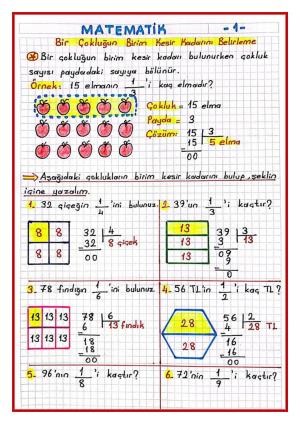 MATEMATİK -1-
Bir Çokluğun Birim Kesir Kadarını Belirleme
* Bir çokluğun birim kesir kadarı bulunurken çokluk
sayısı paydadaki sayıya bölünür.
Örnek: 15 elmanın 1/3 'i kaç elmadır?
Çokluk = 15 elma
Payda = 3
Çözüm: 15 | 3
15 5 elma
00
⇒ Aşağıdaki çoklukların birim kesir kadarını bulup, şeklin
içine yazalım.
1. 32 çiçeğin 1/4 'ini bulunuz.
8 8
8 8
32 | 4
32 8 çiçek
00
2. 39'un 1/3 'i kaçtır?
13
13
13
39 | 3
3 13
09
9
0
3. 78 fındığın 1/6 'ini bulunuz
13 13 13
13 13 13
78 | 6
6 13 fındık
18
18
00
4. 56 TL'in 1/2 'i kaç TL?
28
28
56 | 2
4 28 TL
16
16
00
5- 96'nın 1/8 'i kaçtır?
6- 72'nin 1/9 'i kaçtır?